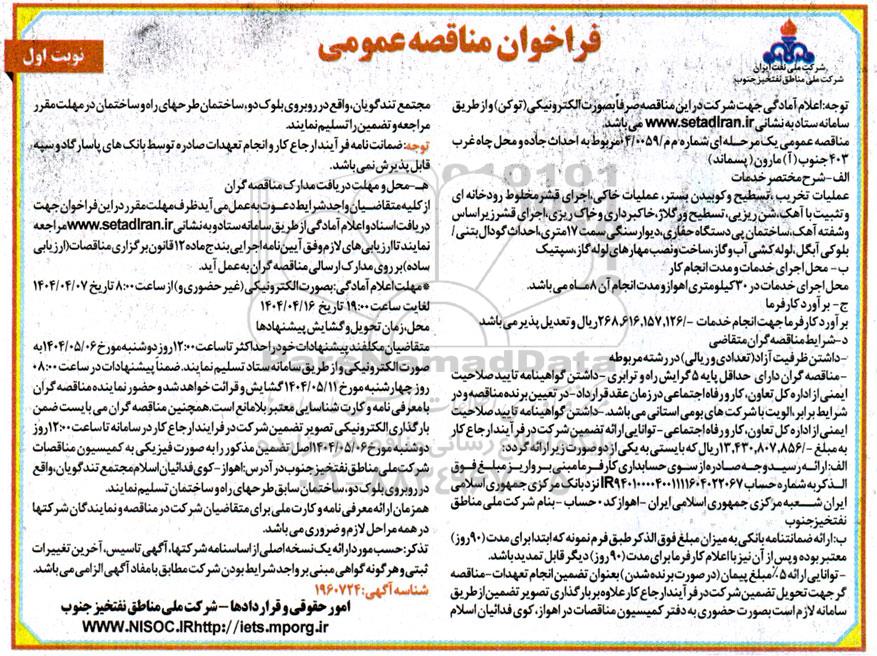 فراخوان مناقصه عمومی
نوبت اول
شرکت ملی نفت ایران
شرکت ملی مناطق نفتخیز جنوب
توجه: اعلام آمادگی جهت شرکت در این مناقصه صرفاً بصورت الکترونیکی (توکن) و از طریق
سامانه ستاد به نشانی www.setadIran.ir می باشد.
مناقصه عمومی یک مرحله ای شماره م م/۰۴/۰۰۵۹ مربوط به احداث جاده و محل چاه غرب
۴۰۳ جنوب (آ) مارون (پسماند)
الف- شرح مختصر خدمات
عملیات تخریب، تسطیح و کوبیدن بستر، عملیات خاکی، اجرای قشر مخلوط رودخانه ای
و تثبیت با آهک، شن ریزی، تسطیح و رگلاژ، خاکبرداری و خاک ریزی، اجرای قشر زیر اساس
وشفته آهک، ساختمان پی دستگاه حفاری، دیوار سنگی سمت ۱۷ متری، احداث گودال بتنی /
بلوکی آبگل، لوله کشی آب و گاز، ساخت و نصب مهارهای لوله گاز، سپتیک
ب- محل اجرای خدمات و مدت انجام کار
محل اجرای خدمات در ۳۰ کیلومتری اهواز و مدت انجام آن ۸ ماه می باشد.
ج- برآورد کارفرما
برآورد کارفرما جهت انجام خدمات -/۲۶۸,۶۱۶,۱۵۷,۱۲۶ ریال و تعدیل پذیر می باشد
د- شرایط مناقصه گران متقاضی
-داشتن ظرفیت آزاد (تعدادی و ریالی) در رشته مربوطه
- مناقصه گران دارای حداقل پایه ۵ گرایش راه و ترابری - داشتن گواهینامه تایید صلاحیت
ایمنی از اداره کل تعاون، کار و رفاه اجتماعی در زمان عقد قرارداد - در تعیین برنده مناقصه و در
شرایط برابر، الویت با شرکت های بومی استانی می باشد. - داشتن گواهینامه تایید صلاحیت
ایمنی از اداره کل تعاون، کار و رفاه اجتماعی - توانایی ارائه تضمین شرکت در فرآیند ارجاع کار
به مبلغ -/۱۳,۴۳۰,۸۰۷,۸۵۶ ریال که بایستی به یکی از دو صورت زیر ارائه گردد:
الف: ارائه رسید وجه صادره از سوی حسابداری کارفرما مبنی بر واریز مبلغ فوق
الذکر به شماره حساب IR۹۴۰۱۰۰۰۰۴۰۰۱۱۱۱۶۰۴۰۲۲۰۶۷ نزد بانک مرکزی جمهوری اسلامی
ایران شعبه مرکزی جمهوری اسلامی ایران - اهواز کد ۰ حساب - بنام شرکت ملی مناطق
نفتخیز جنوب
ب: ارائه ضمانتنامه بانکی به میزان مبلغ فوق الذکر طبق فرم نمونه که ابتدا برای مدت (۹۰ روز)
معتبر بوده و پس از آن نیز با اعلام کارفرما برای مدت (۹۰ روز) دیگر قابل تمدید باشد.
- توانایی ارائه ۵٪ مبلغ پیمان (در صورت برنده شدن) بعنوان تضمین انجام تعهدات - مناقصه
گر جهت تحویل تضمین شرکت در فرآیند ارجاع کار علاوه بر بارگذاری تصویر تضمین از طریق
سامانه لازم است بصورت حضوری به دفتر کمیسیون مناقصات در اهواز، کوی فدائیان اسلام
مجتمع تندگویان، واقع در روبروی بلوک دو، ساختمان طرحهای راه و ساختمان در مهلت مقرر
مراجعه و تضمین را تسلیم نمایند.
توجه: ضمانت نامه فرآیند ارجاع کار و انجام تعهدات صادره توسط بانک های پاسارگاد و سپه
قابل پذیرش نمی باشد.
هـ- محل و مهلت دریافت مدارک مناقصه گران
از کلیه متقاضیان واجد شرایط دعوت به عمل می آید ظرف مهلت مقرر در این فراخوان جهت
دریافت اسناد و اعلام آمادگی از طریق سامانه ستاد و به نشانی www.setadIran.ir مراجعه
نمایند تا ارزیابی های لازم وفق آیین نامه اجرایی بند ج ماده ۱۲ قانون برگزاری مناقصات (ارزیابی
ساده) بر روی مدارک ارسالی مناقصه گران به عمل آید.
*مهلت اعلام آمادگی: بصورت الکترونیکی (غیر حضوری و) از ساعت ۸:۰۰ تاریخ ۱۴۰۴/۰۴/۰۷
لغایت ساعت ۱۹:۰۰ تاریخ ۱۴۰۴/۰۴/۱۶
محل، زمان تحویل و گشایش پیشنهادها
متقاضیان مکلفند پیشنهادات خود را حداکثر تا ساعت ۱۲:۰۰ روز دوشنبه مورخ ۱۴۰۴/۰۵/۰۶ به
صورت الکترونیکی و از طریق سامانه ستاد تسلیم نمایند. ضمناً پیشنهادات در ساعت ۰۸:۰۰
روز چهارشنبه مورخ ۱۴۰۴/۰۵/۱۱ گشایش و قرائت خواهد شد و حضور نماینده مناقصه گران
با معرفی نامه و کارت شناسایی معتبر بلامانع است. همچنین مناقصه گران می بایست ضمن
بارگذاری الکترونیکی تصویر تضمین شرکت در فرایند ارجاع کار در سامانه تا ساعت ۱۲:۰۰ روز
دوشنبه مورخ ۱۴۰۴/۰۵/۰۶ اصل تضمین مذکور را به صورت فیزیکی به کمیسیون مناقصات
شرکت ملی مناطق نفتخیز جنوب در آدرس: اهواز-کوی فدائیان اسلام مجتمع تندگویان، واقع
در روبروی بلوک دو، ساختمان سابق طرحهای راه و ساختمان تسلیم نمایند.
همزمان ارائه معرفی نامه و کارت ملی برای متقاضیان شرکت در مناقصه و نمایندگان شرکتها
در همه مراحل لازم و ضروری می باشد.
تذکر: حسب مورد ارائه یک نسخه اصلی از اساسنامه شرکتها، آگهی تاسیس، آخرین تغییرات
ثبتی و هر گونه گواهی مبنی بر واجد شرایط بودن شرکت مطابق با مفاد آگهی الزامی می باشد.
شناسه آگهی: ۱۹۶۰۷۲۴
امور حقوقی و قراردادها – شرکت ملی مناطق نفتخیز جنوب
WWW.NISOC.IRhttp://iets.mporg.ir